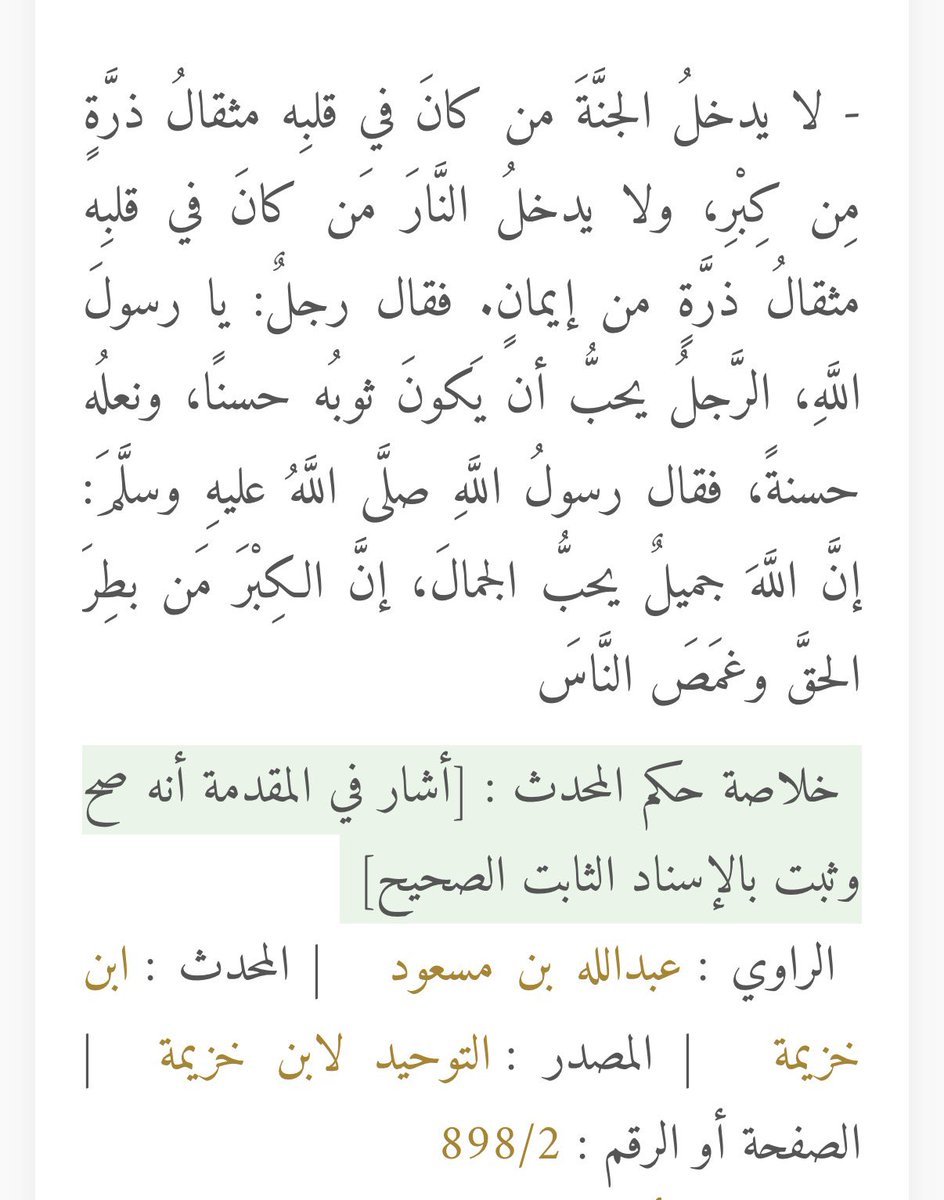 - لا يدخلُ الجنَّةَ من كانَ في قلبِه مثقالُ ذرَّةٍ
مِن كِبْرٍ، ولا يدخلُ النَّارَ مَن كانَ في قلبِه
مثقالُ ذرَّةٍ من إيمانٍ. فقال رجلٌ: يا رسولَ
اللَّهِ، الرَّجلُ يحبُّ أن يَكونَ ثوبُه حسنًا، ونعلُه
حسنةً، فقال رسولُ اللَّهِ صلَّى اللَّهُ عليهِ وسلَّمَ:
إنَّ اللَّهَ جميلٌ يحبُّ الجمالَ، إنَّ الكِبْرَ مَن بطِرَ
الحقَّ وغمَصَ النَّاسَ
خلاصة حكم المحدث : [أشار في المقدمة أنه صح
وثبت بالإسناد الثابت الصحيح]
الراوي : عبدالله بن مسعود | المحدث : ابن
خزيمة | المصدر : التوحيد لابن خزيمة |
الصفحة أو الرقم : 898/2